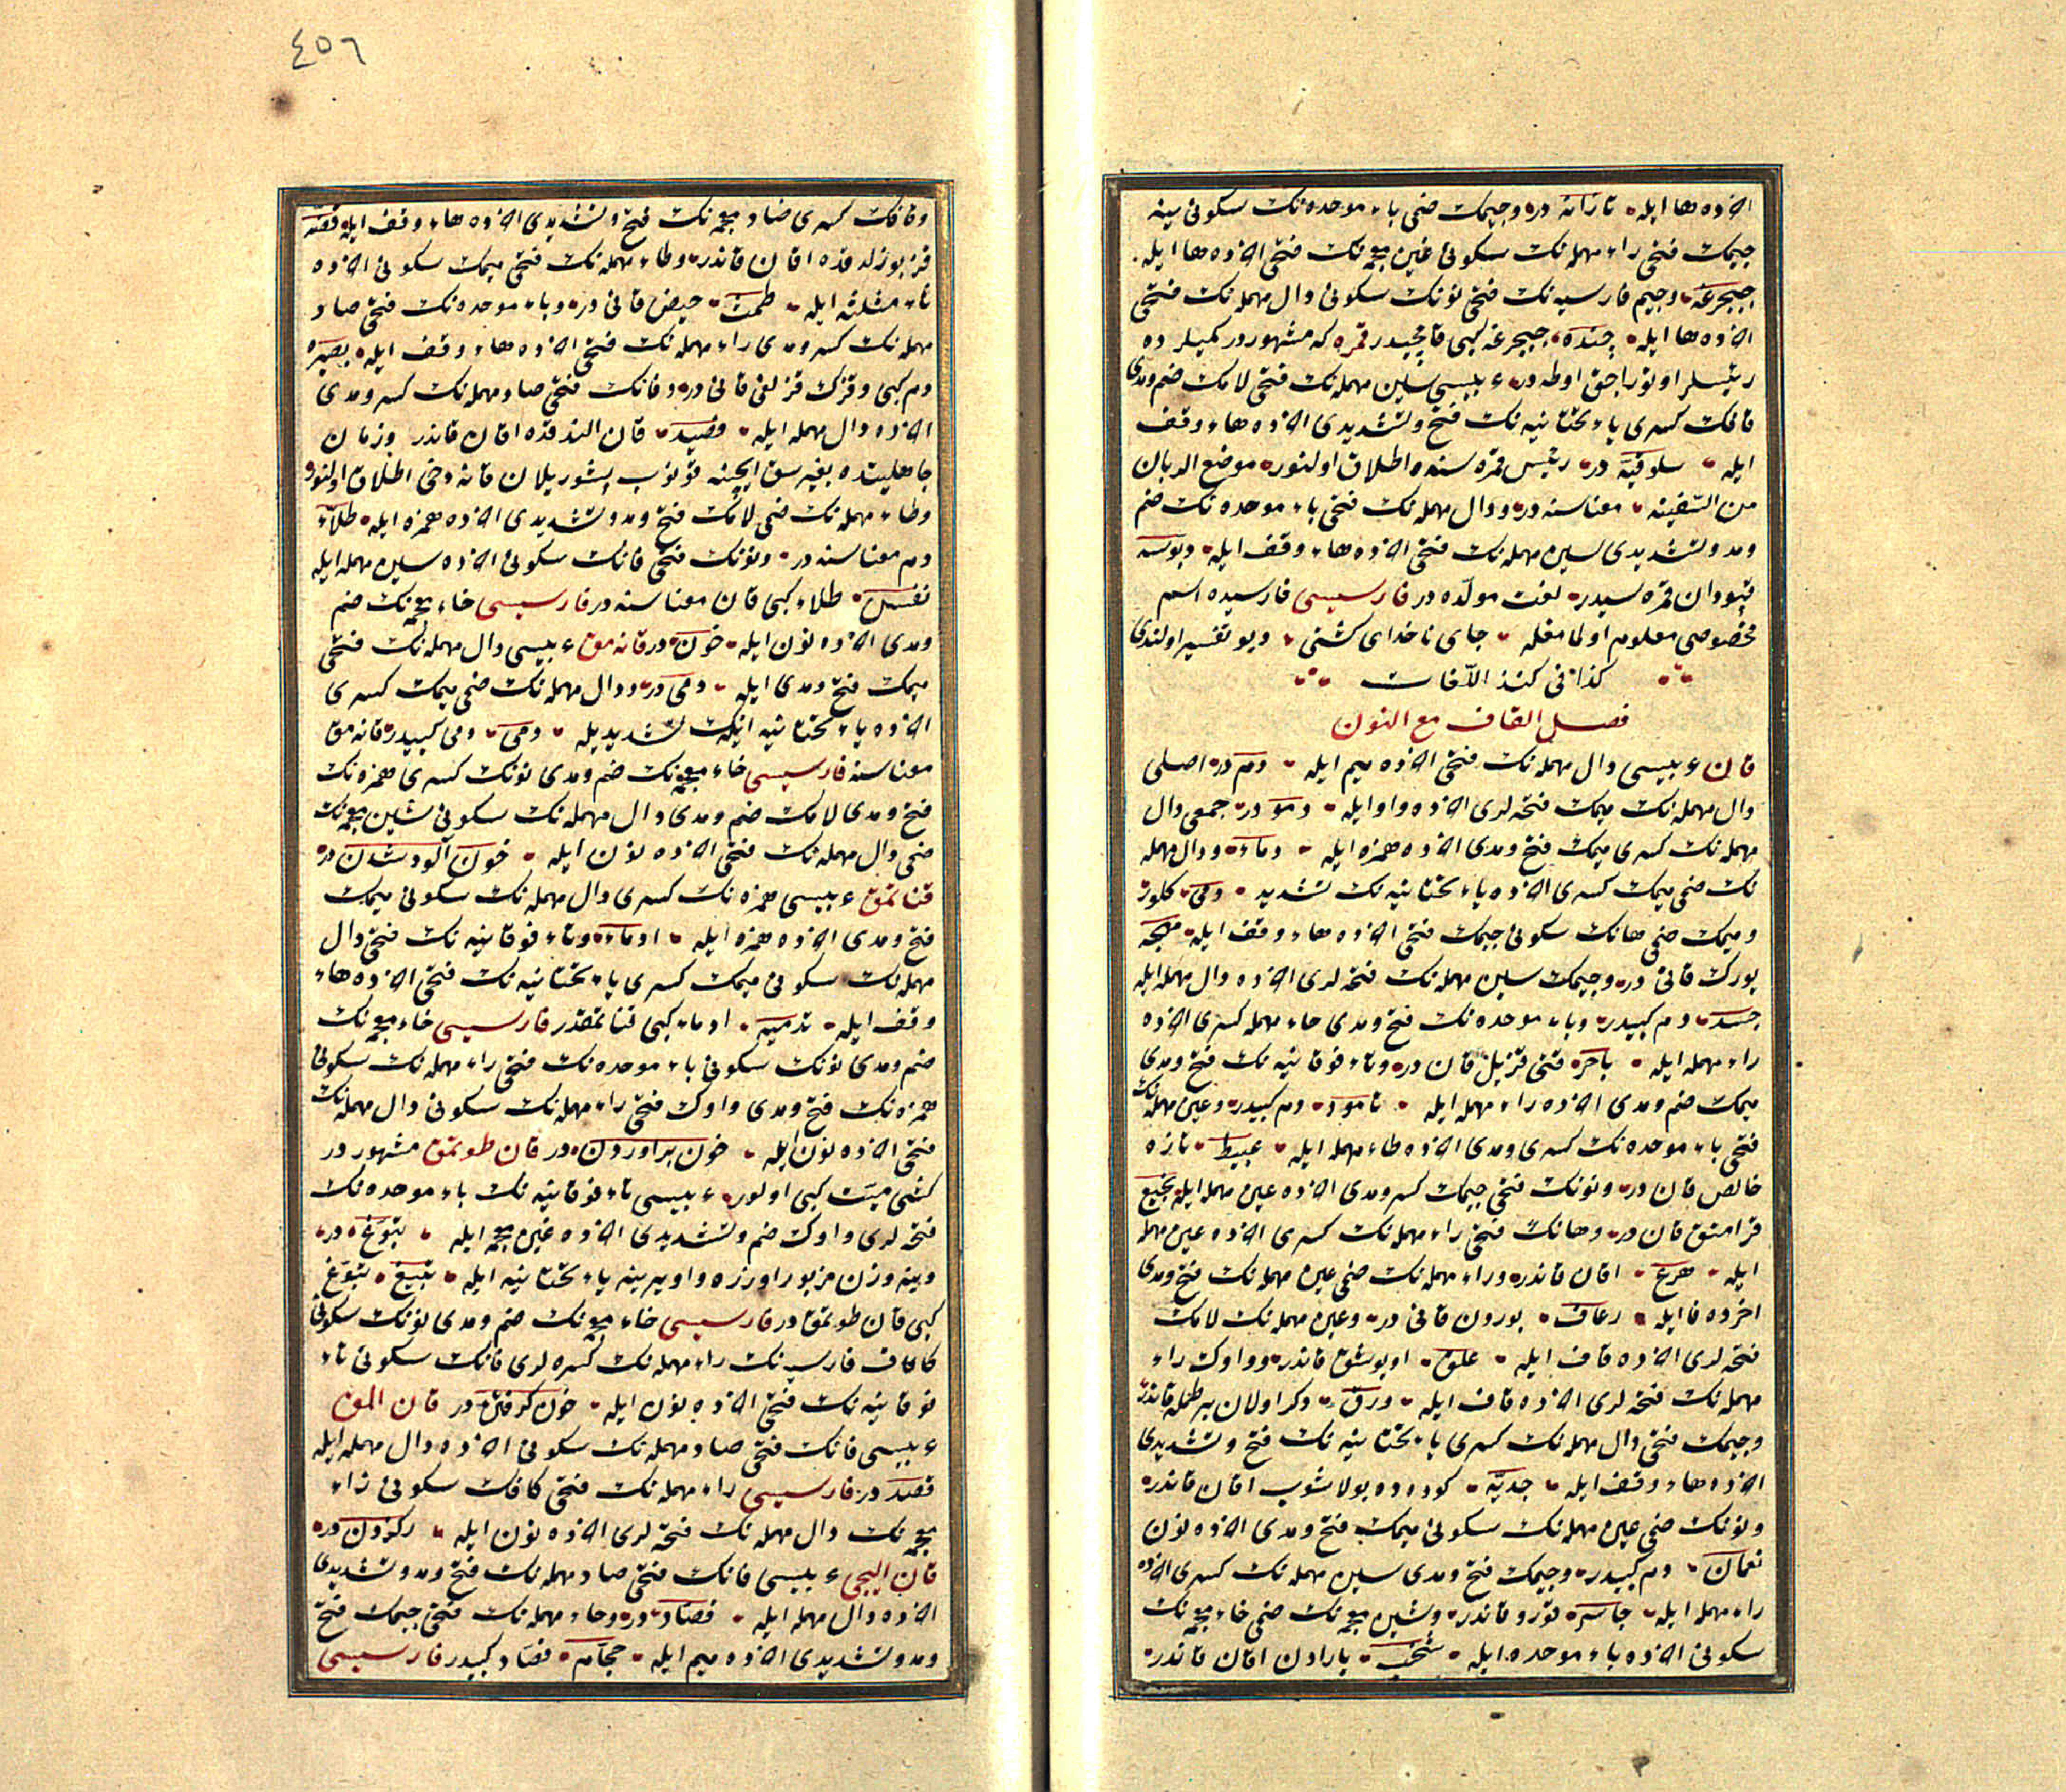 آخرده ها ايله تازانه در وجيمك ضمى باء موحده نك سكونى ينه
جيمك فتحى راء مهمله نك سكونى غين معجمه نك فتحى آخرده ها ايله
جبجرغه وجيم فارسيه نك فتحى نونك سكونى دال مهمله نك فتحى
آخرده ها ايله چنده جبجرغه كبى قامچيدر قمره كه مشهوردر كميلرده
رئيسلر اوتوراجق اوطه در عربيسى سين مهمله نك فتحى لامك ضم ومدى
قافك كسرى ياء تحتانيه نك فتح وتشديدى آخرده هاء وقف
ايله سلوقيه در رئيس قمره سنه اطلاق اولنور موضع الربان
من السفينه معناسنه در ودال مهمله نك فتحى باء موحده نك ضم
ومد وتشديدى سين مهمله نك فتحى آخرده هاء وقف ايله دبوسه
قپودان قمره سيدر لغت مولده در فارسيسى فارسيده اسم
مخصوصى معلوم اولمامغله جاى ناخداى كشتى ديو تفسير اولندى
كذا فى كنز اللغات
فصل القاف مع النون
قان عربيسى دال مهمله نك فتحى آخرده ميم ايله دم در اصلى
دال مهمله نك ميمك فتحه لرى آخرده واو ايله دمو در جمعى دال
مهمله نك كسرى ميمك فتح ومدى آخرده همزه ايله دماء ودال مهمله
نك ضمى ميمك كسرى آخرده ياء تحتانيه نك تشديد دمى كلور
وميمك ضمى هانك سكونى جيمك فتحى آخرده هاء وقف ايله مهجه
يورك قانى در وجيمك سين مهمله نك فتحه لرى آخرده دال مهمله ايله
جسد دم كبيدر وباء موحده نك فتح ومدى حاء مهمله كسرى آخرده
راء مهمله ايله باحر فتى قزيل قان در وتاء فوقانيه نك فتح ومدى
ميمك ضم ومدى آخرده راء مهمله ايله تامور دم كبيدر وعين مهمله نك
فتحى باء موحده نك كسرى ومدى آخرده طاء مهمله ايله عبيط تازه
خالص قان در ونونك فتحى جيمك كسر ومدى آخرده عين مهمله ايله نجيع
قرامتق قان در وهانك فتحى راء مهمله نك كسرى آخرده عين مهمله
ايله هرع اقان قاندر وراء مهمله نك ضمى عين مهمله نك فتح ومدى
آخرده فا ايله رعاف بورون قانى در وعين مهمله نك لامك
فتحه لرى آخرده قاف ايله علق اويوشق قاندر وواوك راء
مهمله نك فتحه لرى آخرده قاف ايله ورق دكر اولان بر طمله قاندر
وجيمك فتحى دال مهمله نك كسرى ياء تحتانيه نك فتح وتشديدى
آخرده هاء وقف ايله جديه كوده ده بولاشوب اقان قاندر
ونونك ضمى عين مهمله نك سكونى ميمك فتح ومدى آخرده نون
نعمان دم كبيدر وجيمك فتح ومدى سين مهمله نك كسرى آخرده
راء مهمله ايله جاسره قورو قاندر وشين معجمه نك ضمى خاء معجمه نك
سكونى آخرده باء موحده ايله شخب يارادن اقان قاندر
٤٥٦
وقافك كسرى ضاد معجمه نك فتح وتشديدى آخرده هاء وقف ايله قضه
قز بوزلدقده اقان قاندر وطاء مهمله نك فتحى ميمك سكونى آخرده
ثاء مثلثه ايله طمث حيض قانى در وباء موحده نك فتحى صاد
مهمله نك كسر ومدى راء مهمله نك فتحى آخرده هاء وقف ايله بصيره
دم كبى وقزك قزلغى قانى در وفانك فتحى صاد مهمله نك كسر ومدى
آخرده دال مهمله ايله فصيد قان الندقده اقان قاندر وزمان
جاهليتده بغرسق ايچنه قونوب پشوريلان قانه دخى اطلاق اولنور
وطاء مهمله نك ضمى لامك فتح ومد وتشديدى آخرده همزه ايله طلاء
دم معناسنه در ونونك فتحى فانك سكونى آخرده سين مهمله ايله
نفس طلاء كبى قان معناسنه در فارسيسى خاء معجمه نك ضم
ومدى آخرده نون ايله خون در قانه مق عربيسى دال مهمله نك فتحى
ميمك فتح ومدى ايله دمى در ودال مهمله نك ضمى ميمك كسرى
آخرده ياء تحتانيه اينك تشديديله دمى دمى كبيدر قانه مق
معناسنه فارسيسى خاء معجمه نك ضم ومدى نونك كسرى همزه نك
فتح ومدى لامك ضم ومدى دال مهمله نك سكونى شين معجمه نك
ضمى دال مهمله نك فتحى آخرده نون ايله خون آلود شدن در
قناتمق عربيسى همزه نك كسرى دال مهمله نك سكونى ميمك
فتح ومدى آخرده همزه ايله ادماء وتاء فوقانيه نك فتحى دال
مهمله نك سكونى ميمك كسرى ياء تحتانيه نك فتحى آخرده هاء
وقف ايله تدميه ادماء كبى قناتمقدر فارسيسى خاء معجمه نك
ضم ومدى نونك سكونى باء موحده نك فتحى راء مهمله نك سكونى
همزه نك فتح ومدى واوك فتحى راء مهمله نك سكونى دال مهمله نك
فتحى آخرده نون ايله خون برآوردن در قان طوتمق مشهوردر
كشى ميت كبى اولور عربيسى تاء فوقانيه نك باء موحده نك
فتحه لرى واوك ضم وتشديدى آخرده غين معجمه ايله تبوغ در
وينه وزن مزبور اوزره واو يرينه ياء تحتانيه ايله تبيغ تبوغ
كبى قان طوتمق در فارسيسى خاء معجمه نك ضم ومدى نونك سكونى
كاف فارسيه نك راء مهمله نك كسره لرى فانك سكونى تاء
فوقانيه نك فتحى آخرده نون ايله خون گرفتن در قان المق
عربيسى فانك فتحى صاد مهمله نك سكونى آخرده دال مهمله ايله
فصد در فارسيسى راء مهمله نك فتحى كافك سكونى زاء
معجمه نك دال مهمله نك فتحه لرى آخرده نون ايله رگ زدن در
قان اليجى عربيسى فانك فتحى صاد مهمله نك فتح ومد وتشديدى
آخرده دال مهمله ايله فصاد در وحاء مهمله نك فتحى جيمك فتح
ومد وتشديدى آخرده ميم ايله حجام فصاد كبيدر فارسيسى